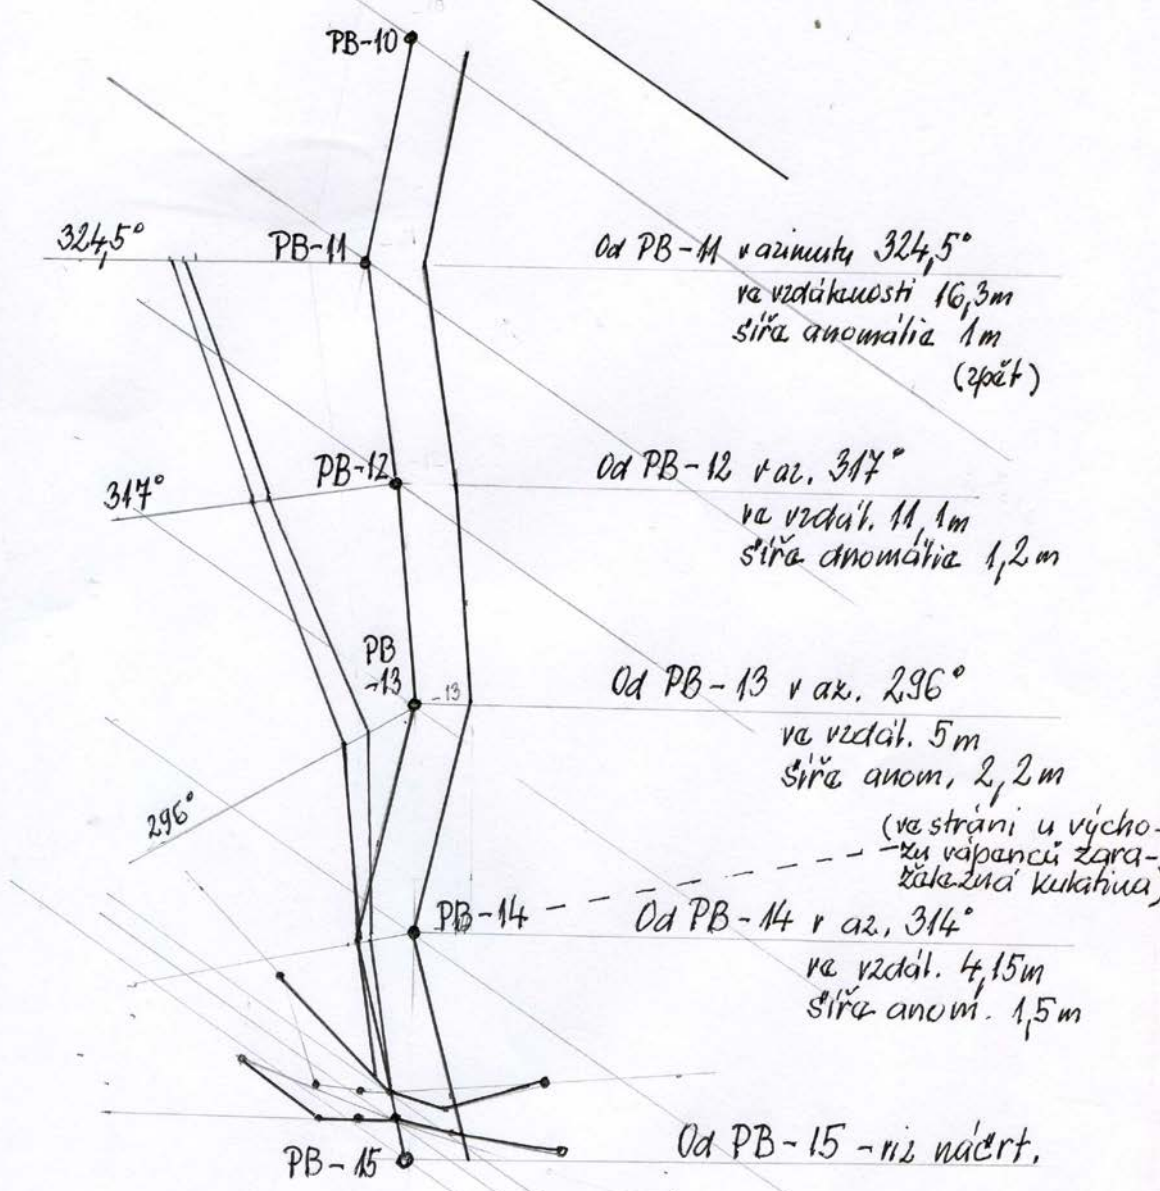 PB-10
324,5°
PB-11
Od PB-11 v azimutu 324,5°
ve vzdálenosti 16,3m
šířa anomálie 1m
(zpět)
PB-12
317°
Od PB-12 v az. 317°
ve vzdál. 11,1m
šířa anomálie 1,2m
PB
-13
-13
Od PB-13 v az. 296°
ve vzdál. 5m
šířa anom. 2,2m
296°
(ve stráni u výcho-
-zu vápenců zara-
železná kulatina)
PB-14
Od PB-14 v az. 314°
ve vzdál. 4,15m
šířa anom. 1,5m
PB-15
Od PB-15 -viz náčrt.